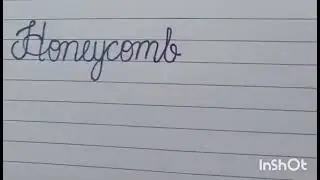 Honeycomb
InShOt